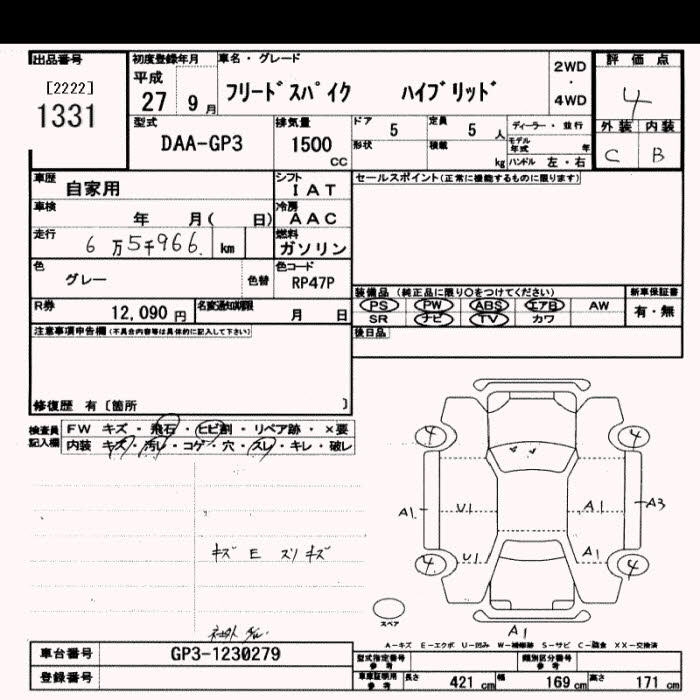 出品番号 初度登録年月 車名・グレード 2WD 評価点
[2222] 平成 ・ 4
1331 27 9月 フリードスパイク ハイブリッド 4WD
型式 排気量 ドア 5 定員 5人 ディーラー・並行 外装 内装
DAA-GP3 1500 CC 形状 積載 kg モデル年式 年 C B
ハンドル 左・右
車歴 自家用 シフト IAT セールスポイント(正常に機能するものに限ります)
車検 年 月( 日) 冷房 AAC
走行 6万5千966 km 燃料 ガソリン
色 グレー 色替 色コード RP47P
装備品(純正品に限り○をつけてください) 新車保証書
R券 12,090円 名変通知期限 月 日 PS PW ABS エアB AW 有・無
SR ナビ TV カワ
注意事項申告欄(不具合内容等は具体的に記入して下さい) 後日品
修復歴 有〔箇所 〕
検査員記入欄 FW キズ・飛石・ヒビ割・リペア跡・×要
内装 キズ・汚レ・コゲ・穴・スレ・キレ・破レ
4 4
A1 U1 A1 A3
キズ E スリキズ U1 A1
4 4
スペア
A1
A-キズ E-エクボ U-凹み W-補修跡 S-サビ C-腐食 XX-交換済
車台番号 GP3-1230279 型式指定番号 参考 類別区分番号 参考
登録番号 車庫証明用 参考 長さ 421cm 幅 169cm 高さ 171cm